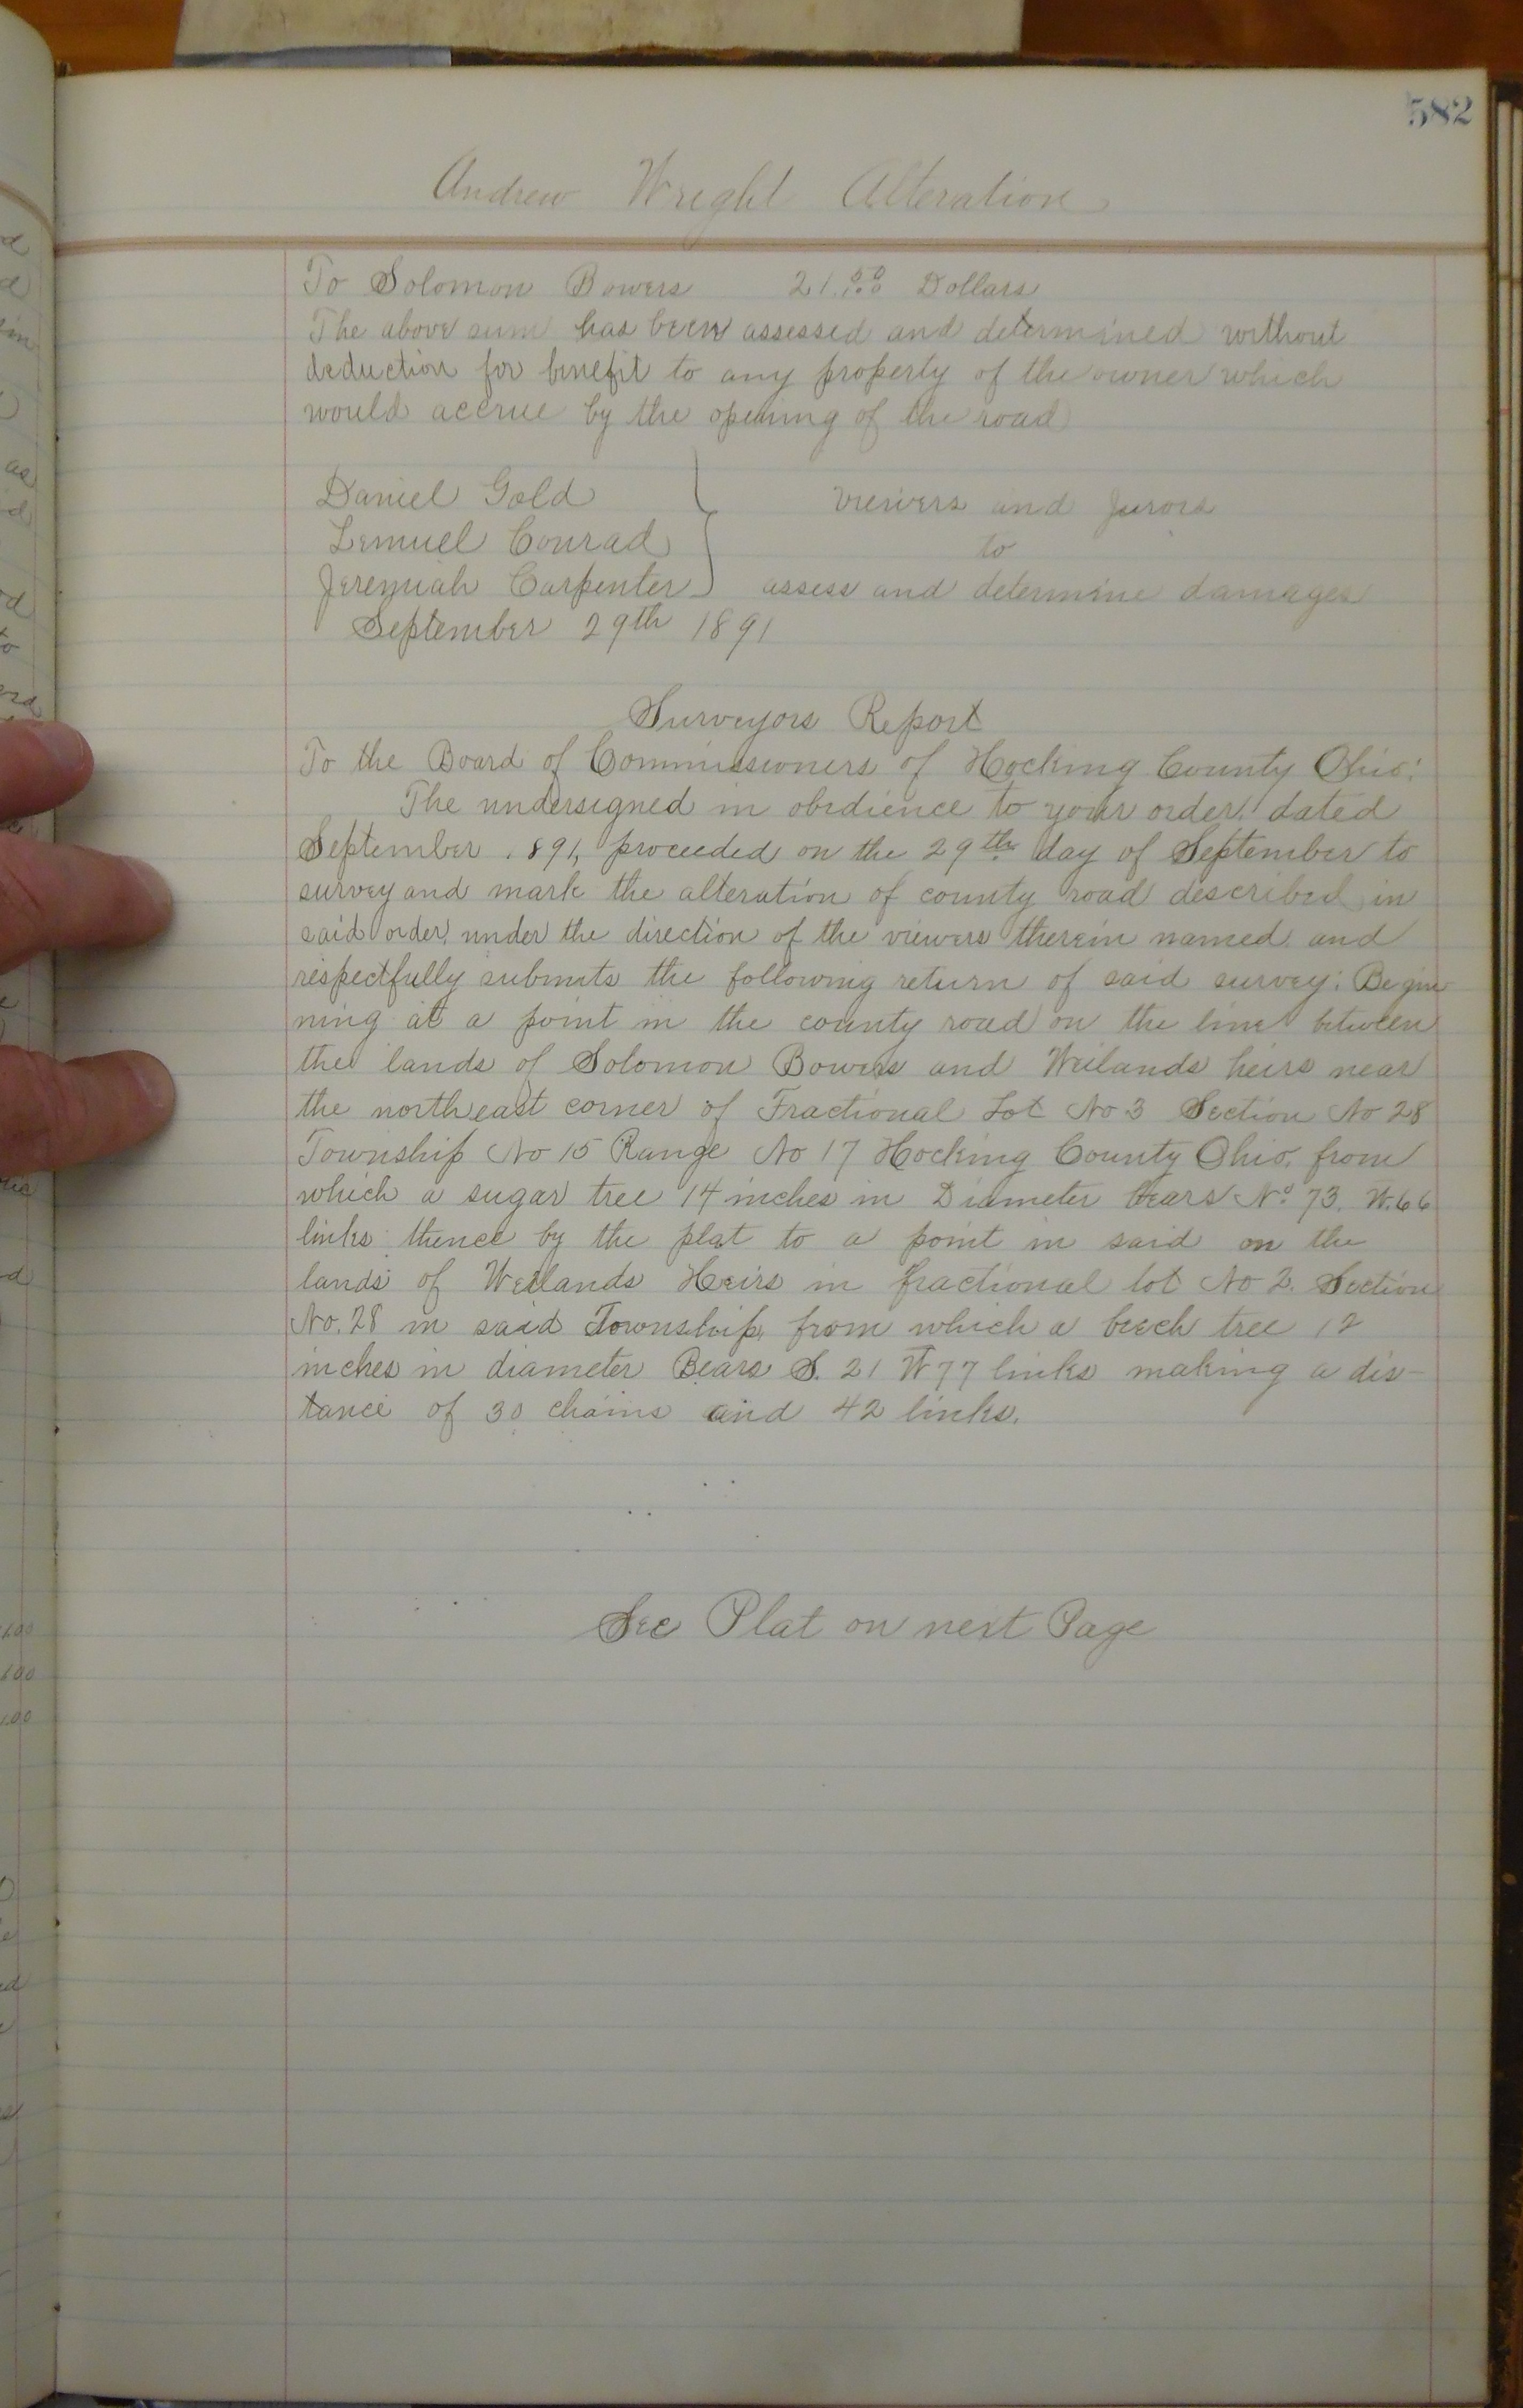 582
Andrew Wright Alteration
To Solomon Bowers 21.00/100 Dollars
The above sum has been assessed and determined without
deduction for benefit to any property of the owner which
would accrue by the opening of the road
Daniel Gold
Viewers and Jurors
Lemuel Conrad
to
Jeremiah Carpenter
assess and determine damages
September 29th 1891
Surveyors Report
To the Board of Commissioners of Hocking County Ohio:
The undersigned in obedience to your order, dated
September 1891, proceeded on the 29th day of September to
survey and mark the alteration of county road described in
said order, under the direction of the viewers therein named, and
respectfully submits the following return of said survey: Begin
ning at a point in the county road on the line between
the lands of Solomon Bowers and Weilands heirs near
the northeast corner of Fractional Lot No 3 Section No 28
Township No 15 Range No 17 Hocking County Ohio, from
which a sugar tree 14 inches in Diameter bears No. 73. W. 66
links thence by the plat to a point in said on the
lands of Weilands Heirs in fractional lot No 2. Section
No. 28 in said Township, from which a beech tree 12
inches in diameter Bears S. 21 W 77 links making a dis-
tance of 30 chains and 42 links.
See Plat on next Page